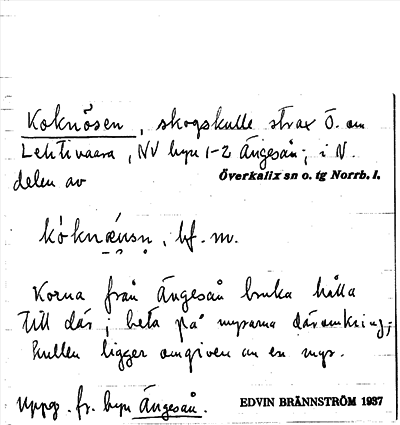 Koknösen, skogskulle strax Ö. om
Lehtivaara, NV byn 1-2 Ängesån; i N.
delen av Överkalix sn o. tg Norrb. l.
kóknǽnsn, bf. m.
Korna från Ängesån bruka hålla
till där; beta på myrarna däromkring;
kullen ligger omgiven av en myr.
Uppg. fr. byn Ängesån. EDVIN BRÄNNSTRÖM 1937